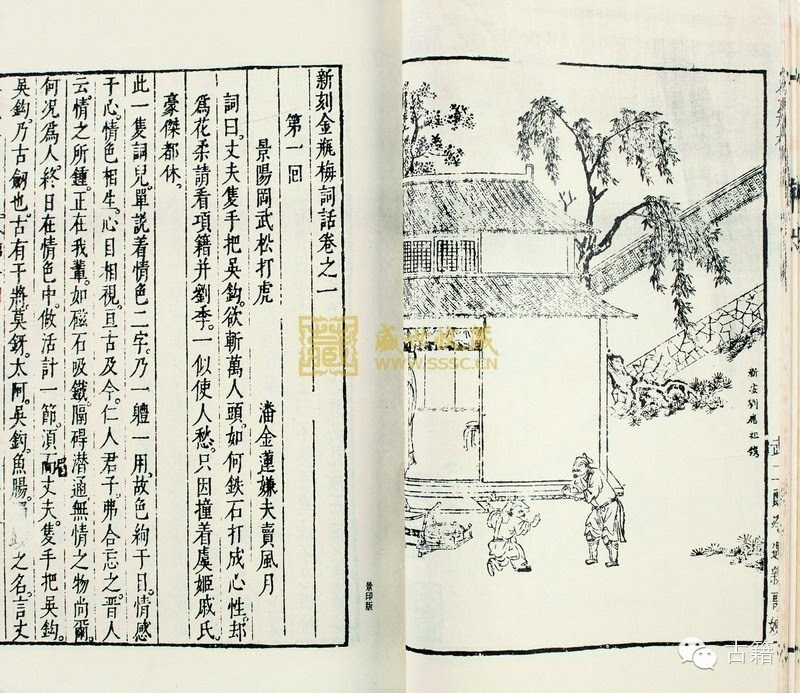 新安劉應祖鐫
武二郎
遇親哥嫂
景印版
新刻金瓶梅詞話卷之一
第一回
景陽岡武松打虎　潘金蓮嫌夫賣風月
詞曰。丈夫隻手把吳鈎。欲斬萬人頭。如何鉄石打成心性。却
爲花柔請看項籍并劉季。一似使人愁。只因撞着虞姬戚氏
豪傑都休。
此一隻詞兒單說着情色二字。乃一體一用。故色絢于目。情感
于心。情色相生。心目相視。亘古及今。仁人君子。弗合忘之。晉人
云。情之所鍾。正在我輩。如磁石吸鐵。隔碍潛通。無情之物尚爾。
何况爲人。終日在情色中。做活計一節。須丈夫。隻手把吳鈎。
吳鈎。乃古劍也。古有干將莫釾。太阿。吳鈎。魚腸。之名。言丈
盛世收藏
WWW.SSSC.CN
古籍